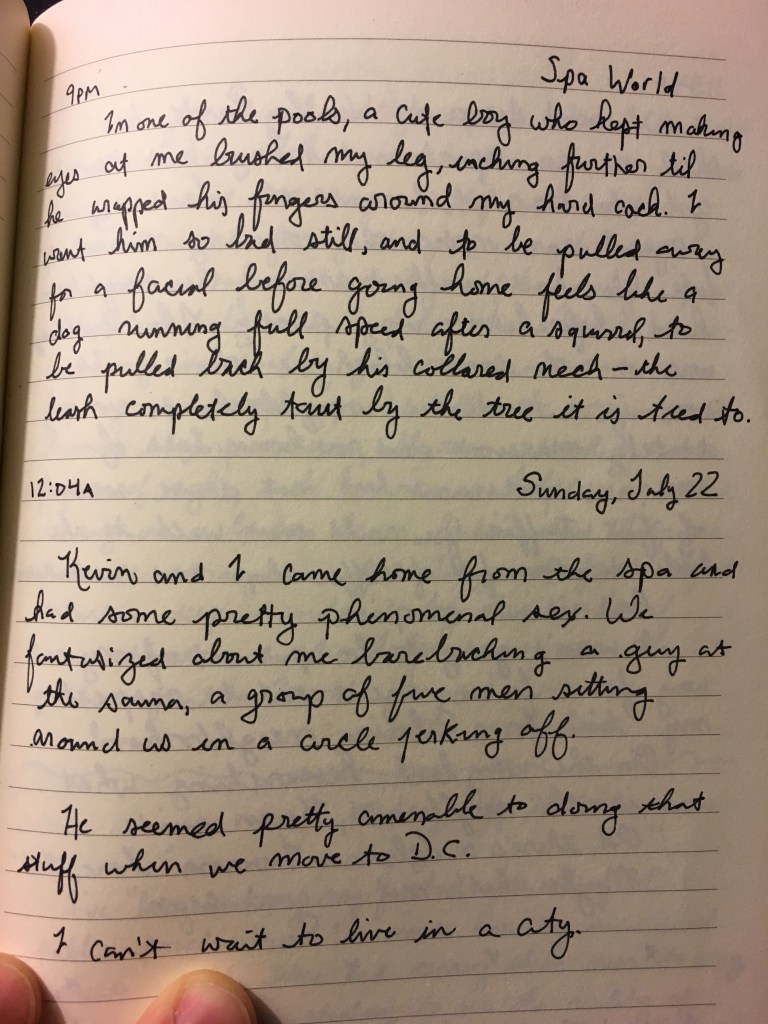 9PM Spa World
In one of the pools, a cute boy who kept making
eyes at me brushed my leg, inching further til
he wrapped his fingers around my hard cock. I
want him so bad still, and to be pulled away
for a facial before going home feels like a
dog running full speed after a squirrel, to
be pulled back by his collared neck – the
leash completely taut by the tree it is tied to.
12:04A Sunday, July 22
Kevin and I came home from the spa and
had some pretty phenomenal sex. We
fantasized about me barebacking a guy at
the sauna, a group of five men sitting
around us in a circle jerking off.
He seemed pretty amenable to doing that
stuff when we move to D.C.
I can't wait to live in a city.